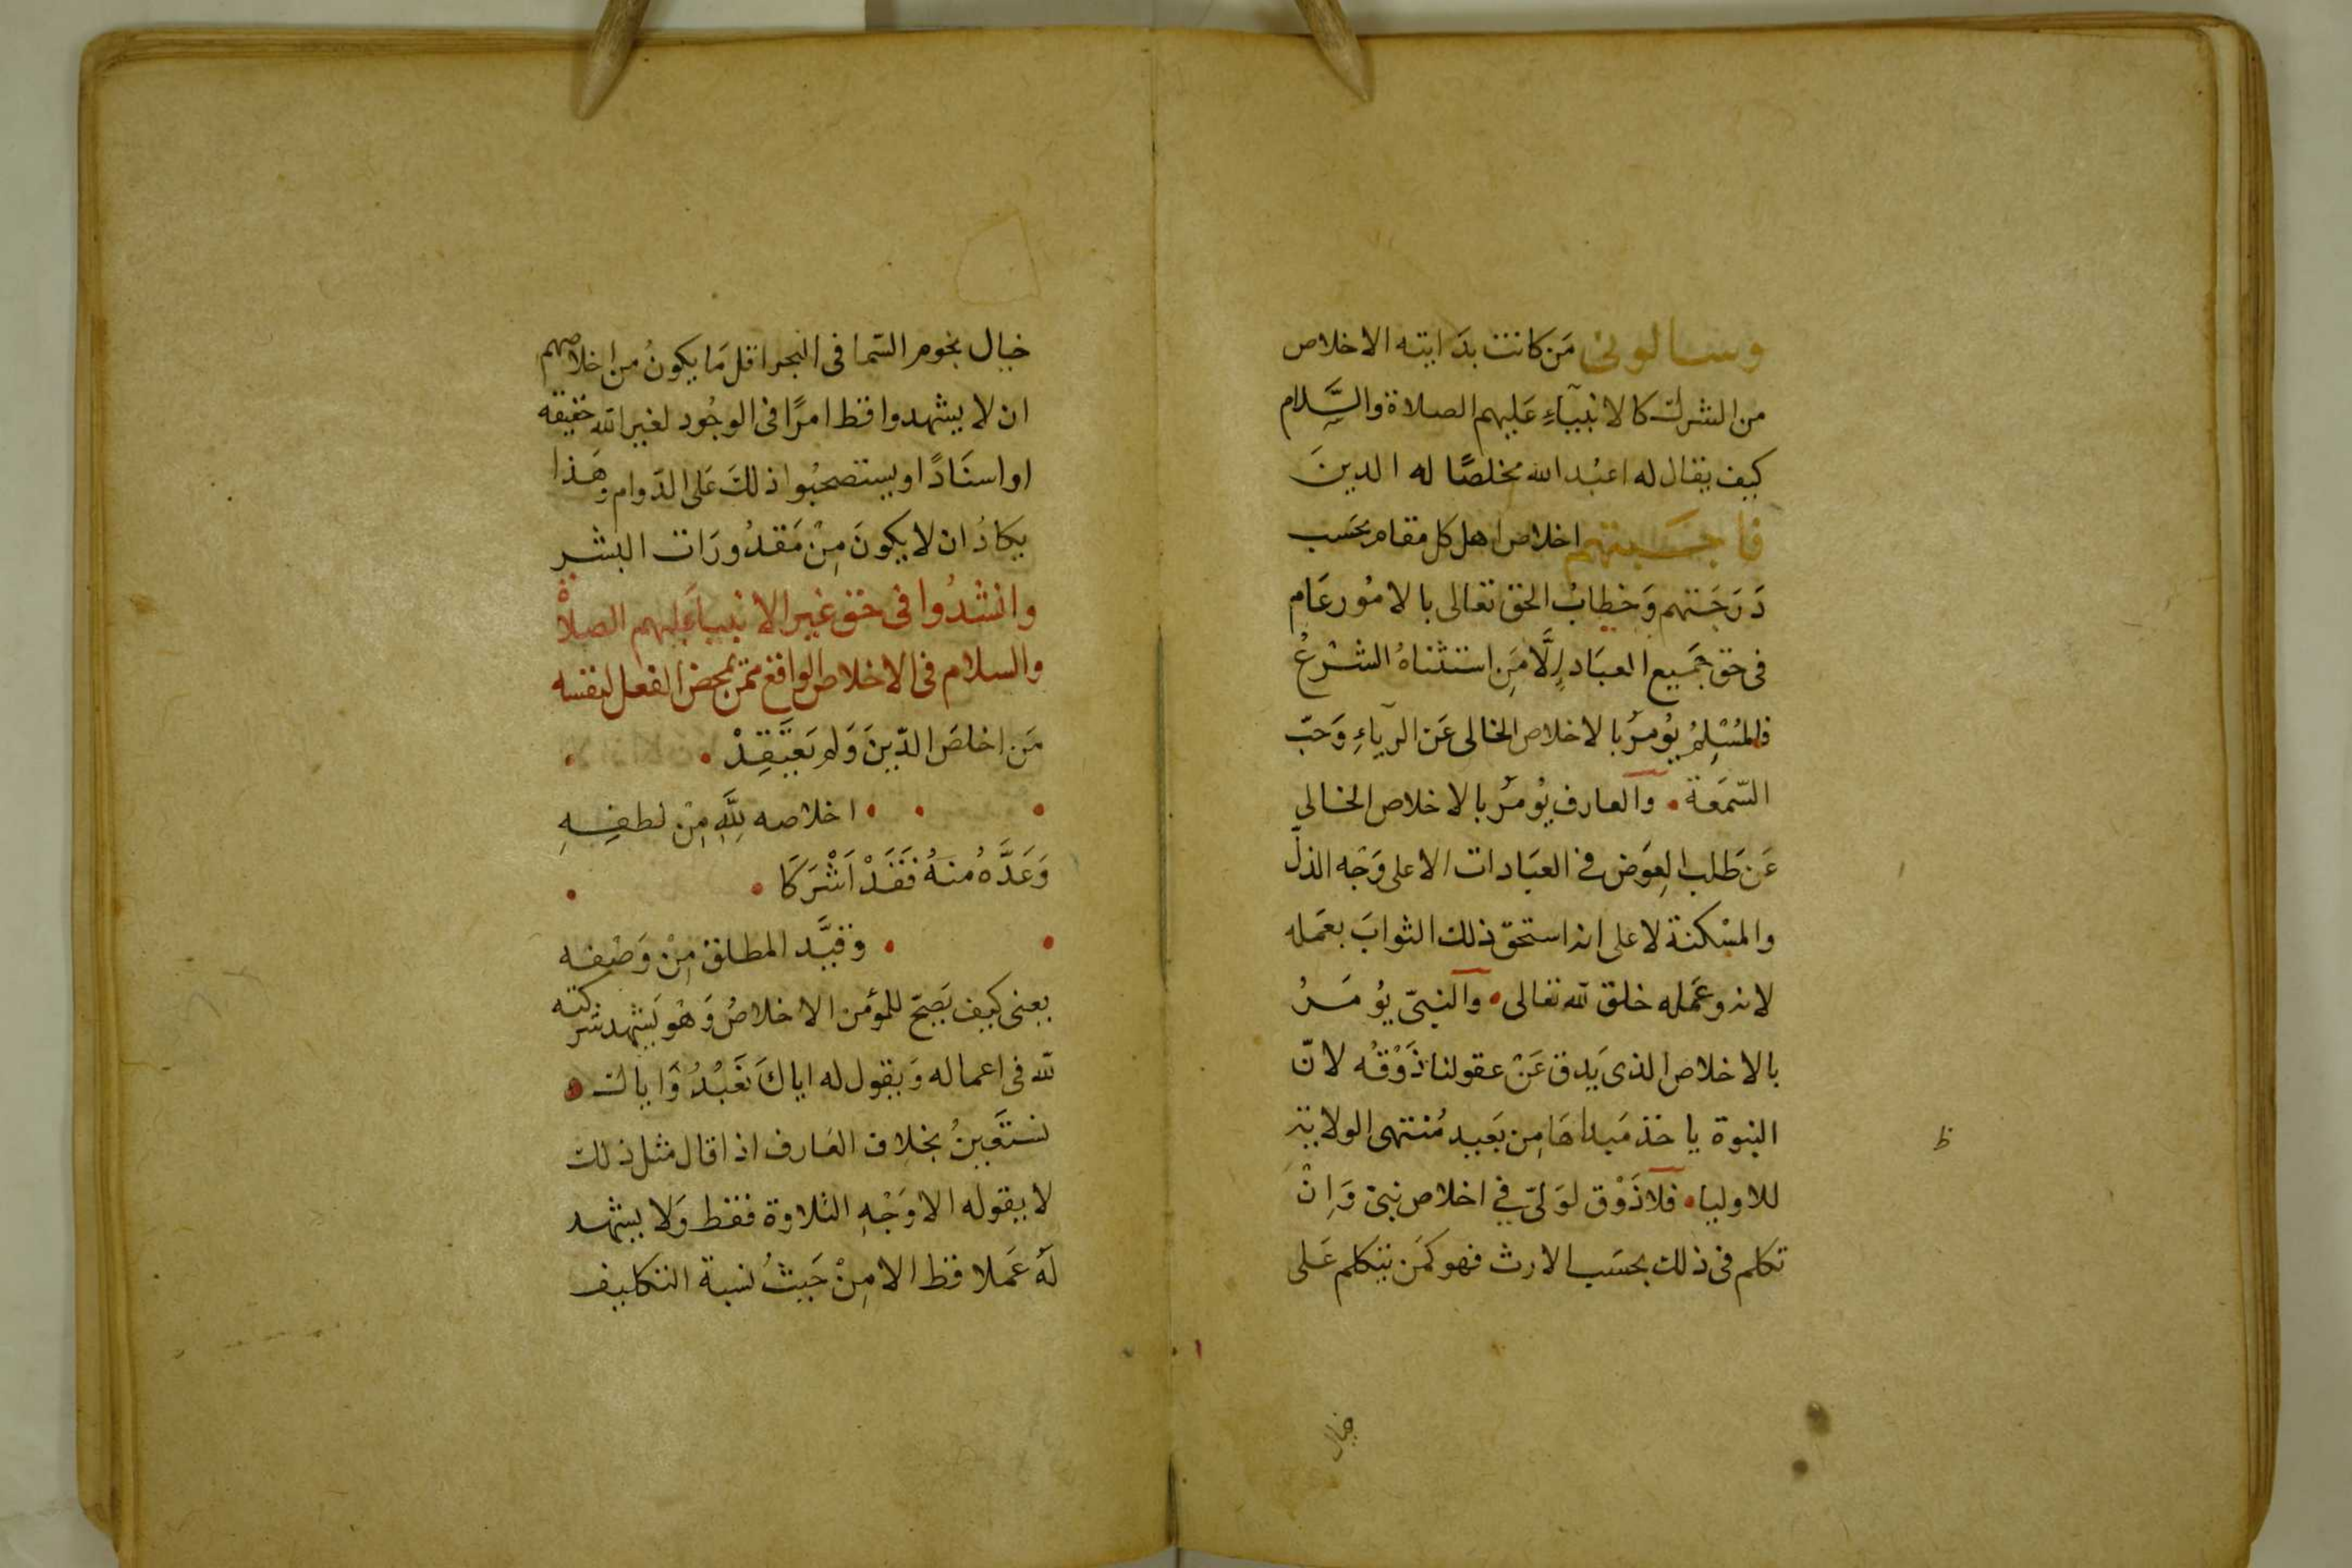 وسالونى مَن كانت بدَايته الاخلاص
من الشرك كالانبيآءِ عَليهم الصلاة والسَّلام
كيف يقال له اعبُد الله مخلصًا له الدينَ
فاجَبتهم اخلاص اهل كل مقام بحَسَب
دَرَجَتهم وَخطابُ الحق تعالى بالامُور عَام
فى حق جَميع العبَاد اِلَّا مَن استثناهُ الشرْعُ
فالمُسْلِمُ يُومَرُ بالاخلاص الخالى عَن الريآءِ وَحَبّ
السّمَعَة • وَالعارف يُومَرُ بالاخلاص الخالى
عَن طَلب العِوَض فى العبَادات الا على وَجْه الذلّ
والمسْكنة لا على انه استحقّ ذلك الثوابَ بعَمله
لانه وعَمله خلق لله تعالى • وَالنبىّ يُومَرُ
بالاخلاص الذى يَدق عَنْ عقولنا ذَوْقُه لانّ
النبوة ياخذ مَبداهَا مِن بَعيد مُنتهى الولاية
ظ
للاوليا • فلا ذَوْق لوَلىّ فى اخلاص نبىّ وَاِنْ
تكلم فى ذلك بحسَب الارث فهو كمَن يتكلم عَلى
خيال
خيال نجوم السّما فى البحر اقل مَا يكونُ من اخلاصهم
ان لا يشهدوا قط امرًا فى الوجُود لغير الله حقيقه
او اسنَادًا ويستصحبُوا ذلكَ عَلى الدَوام وهَذا
يكادُ ان لا يكونَ مِنْ مَقدُورَات البشر
وانشدُوا فى حق غير الانبياءَ عليهم الصلاة
والسلام فى الاخلاص الواقع ممّن يمحض الفعل لنفسه
مَن اخلصَ الدّينَ وَلم يَعتَقِدْ •
• اخلاصه لِلَّهِ مِنْ لطفِهِ
وَعَدَّهُ مُنهُ فَقَدْ اَشْرَكَا •
• وَقيَّد المطلق مِنْ وَصْفه
يعنى كيف يَصِحّ للمؤمن الاخلاصُ وَهُو يَشهد شركته
لله فى اعماله وَيقول له اياكَ نَعْبُدُ وَاياك •
نستَعِينُ بخلاف العَارف اذا قال مثل ذلك
لا يقوله الا وَجْهِ التلاوة فقط وَلا يشهد
لَهُ عَملا قط الا مِنْ حَيثُ نسبة التكليف